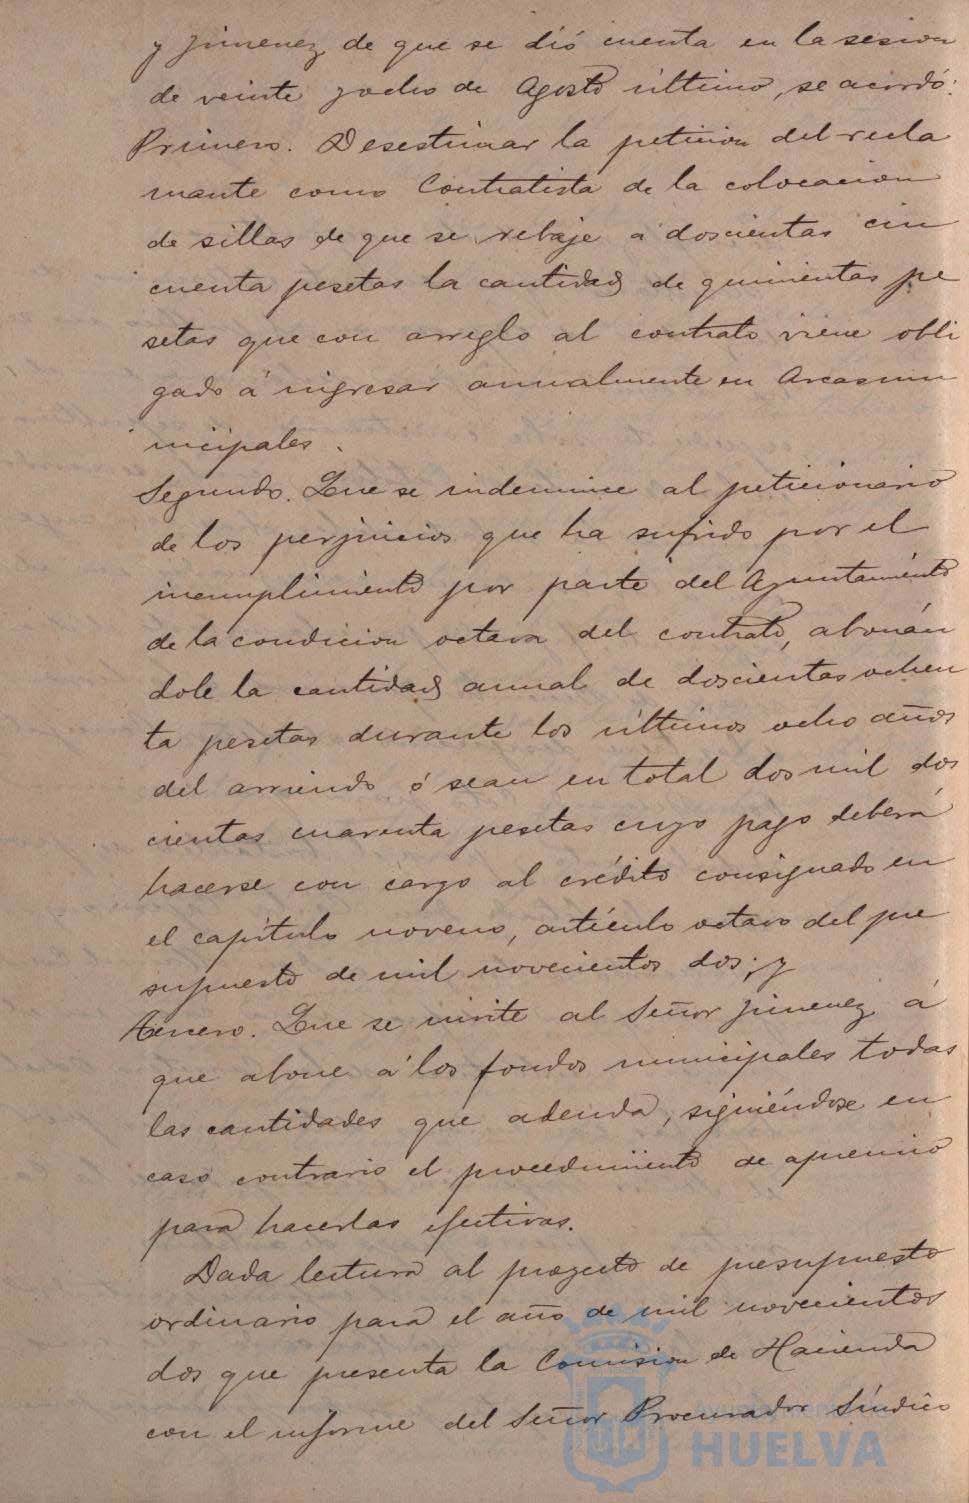 y Jimenez de que se dió cuenta en la sesion
de veinte y ocho de Agosto último, se acordó:
Primero. Desestimar la peticion del recla
mante como Contratista de la colocacion
de sillas de que se rebaje a doscientas cin
cuenta pesetas la cantidad de quinientas pe
setas que con arreglo al contrato viene obli
gado á ingresar anualmente en Arcas mu
nicipales.
Segundo. Que se indemnice al peticionario
de los perjuicios que ha sufrido por el
incumplimiento por parte del Ayuntamiento
de la condicion octava del contrato, abonán
dole la cantidad anual de doscientas ochen
ta pesetas durante los últimos ocho años
del arriendo ó sean en total dos mil dos
cientas cuarenta pesetas cuyo pago deberá
hacerse con cargo al crédito consignado en
el capítulo noveno, artículo octavo del pre
supuesto de mil novecientos dos; y
Tercero. Que se invite al Señor Jimenez á
que abone á los fondos municipales todas
las cantidades que adeuda, siguiéndose en
caso contrario el procedimiento de apremio
para hacerlas efectivas.
Dada lectura al proyecto de presupuesto
ordinario para el año de mil novecientos
dos que presenta la Comision de Hacienda
con el informe del Señor Procurador Síndico
HUELVA